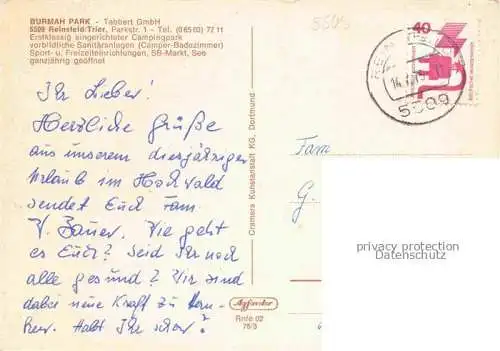 BURMAH PARK - Tabbert GmbH
5509 Reinsfeld/Trier, Parkstr. 1 - Tel. (0 65 03) 72 11
Erstklassig eingerichteter Campingpark
vorbildliche Sanitäranlagen (Camper-Badezimmer)
Sport- u. Freizeiteinrichtungen, SB-Markt, See
ganzjährig geöffnet
Ihr Lieben!
Herzliche Grüße
aus unserem diesjährigen
Urlaub im Hochwald
sendet Euch Fam.
W. Bauer. Wie geht
es Euch? Seid Ihr noch
alle gesund? Wir sind
dabei neue Kraft zu
Habt Ihr schon?
Cramers Kunstanstalt KG, Dortmund
Rnfe 02
76/3
5509
40
5509
Fam
G.
privacy protection
Datenschutz